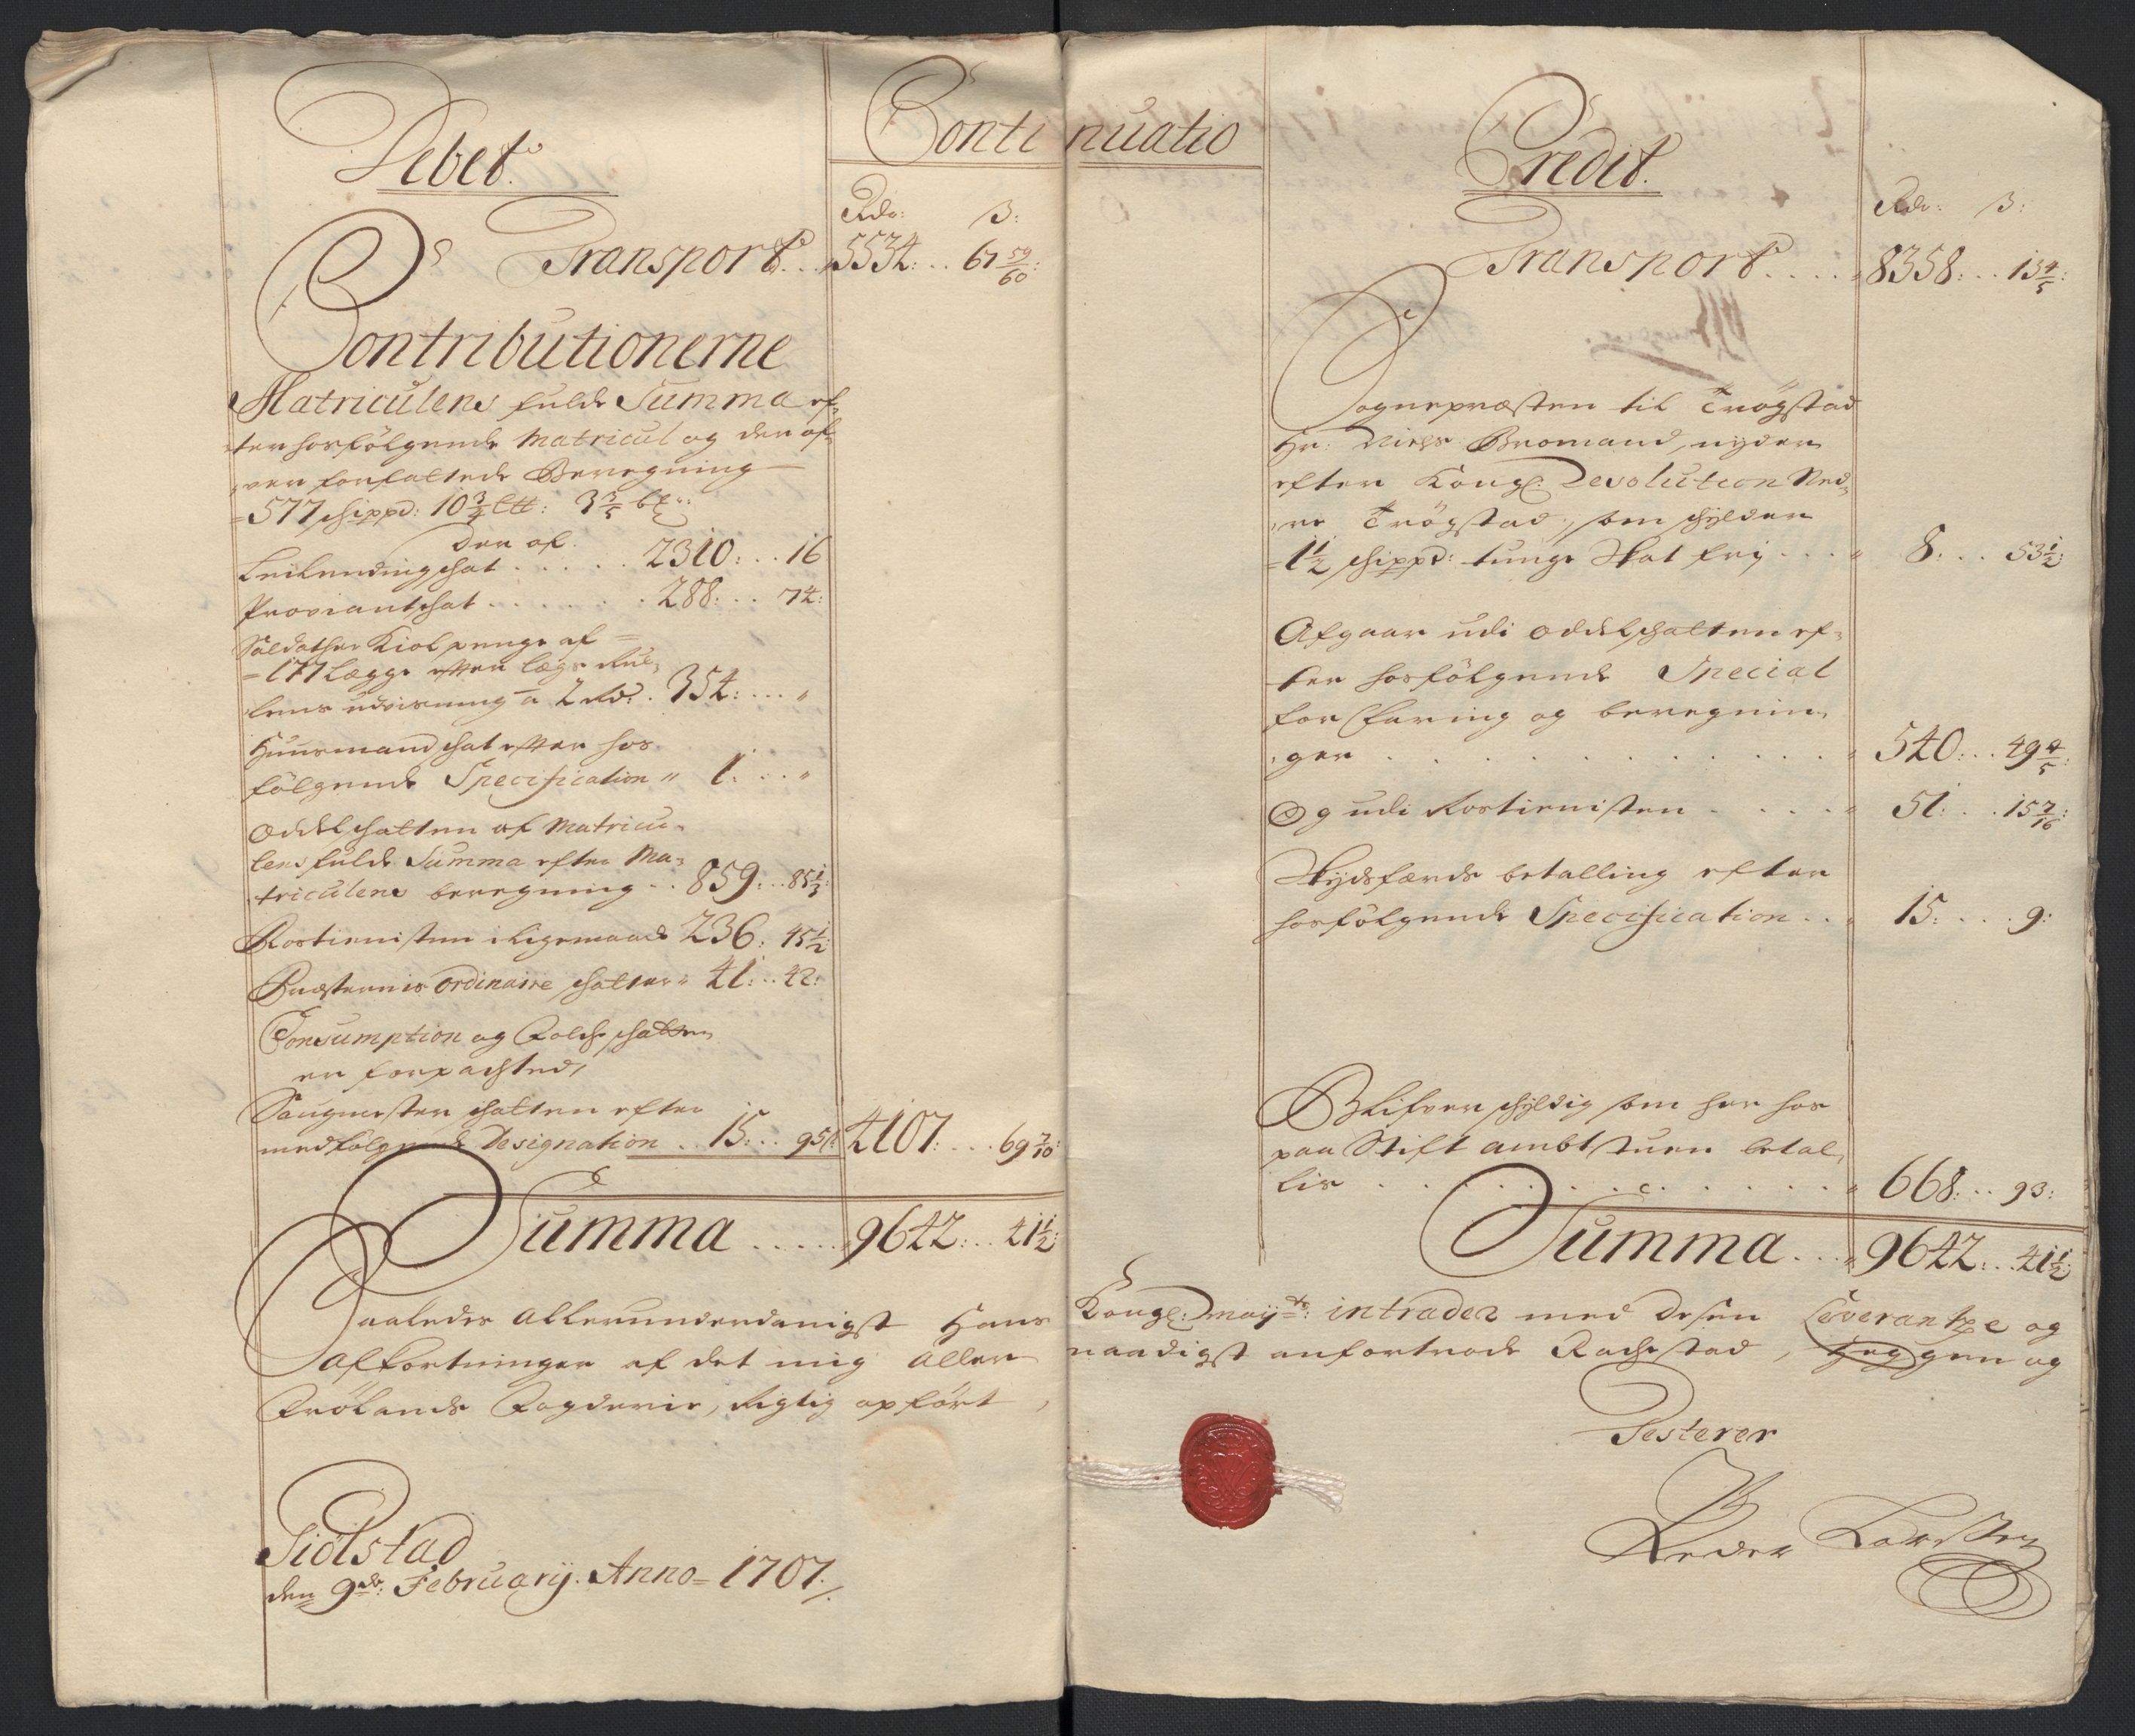 Continuatio
Debet.
Rdr: ß:
Transport . . 5534: . . 67 59/60:
Contributionerne
Matriculens fulde Summa ef-
ter hosfölgende Matricul og der of-
ver forfattede Beregning
577 schippd: 10 3/4 Ltt: 3 3/5
Der af.
Leilendingschat . . . . . 2310: . . 16
Proviantschat . . . . . . 288: . . 74:
Soldather Kiol penge af
177 Lægge efter lægs Rul-
lens udvisning a 2 Rdr. 354: . . . "
Huusmand schat efter hos
fölgende Specification " 1: . . "
Oddelschatten af Matricu-
lens fulde Summa efter Ma-
triculens beregning . . 859: . . 85 1/3:
Rostienisten i ligemaade 236: 45 1/2:
Præsternis Ordinaire schatter " 41: . . 42:
Consumption og Folcheschatten
er forpachted,
Saugmester schatten efter
medfölgende Designation . . 15: . . 95 4107: . . . 69 7/10:
Summa . . . . . 9642: . . 41 1/2:
Credit.
Rdr: ß:
Transport . . . . " 8358: . . 13 4/5:
Sognepræsten til Trögstad
Hr: Niels Bromand, nyder
efter Kongl: Resolution Ned-
re Trögstad, som schylder
1 1/2 schippd: tunge Skat frj . . . " 8: . . 53 1/2:
Afgaar udi Oddelschatten ef-
ter hosfölgende Special
forklaring og beregnin-
ger . . . . . . . . . . . " 540: . . 49 4/5:
Og udi Rostienisten . . . . " 51: . . 15 7/16:
Skydsfærds betalling efter
hosfölgende Specification . . " 15: . . . 9:
Blifver schyldig som her hos
paa Stift ambtstuen betal-
lis . . . . . . . . . . . " 668: . . 93:
Summa . . . " 9642: . . 41 1/2:
Saaledes Allerunderdanigst Hans Kongl: May:ts: intrader med desen Leverantze og
Affortninger af det mig Aller naadigst anfortrode Rachestad, Heggen og
Frölands Fogderie, Rigtig opfört,
Testerer
Sidlstad
den 9de: February. Anno 1707.
Peder Larssen